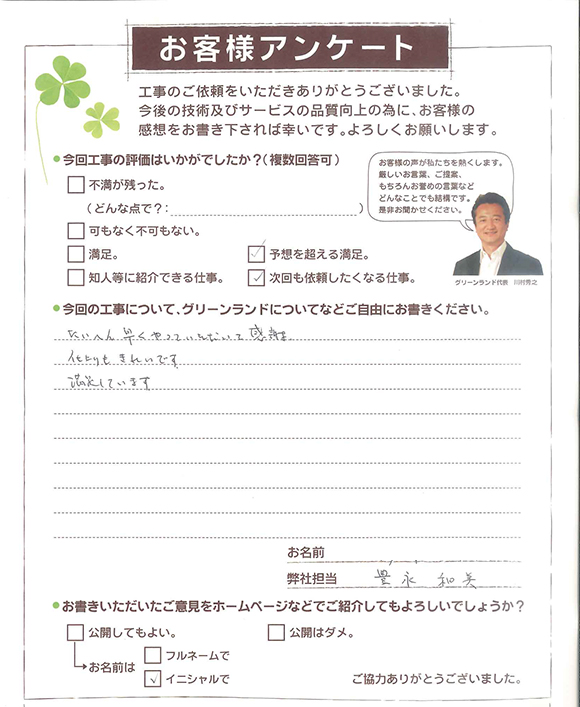 お客様アンケート
工事のご依頼をいただきありがとうございました。
今後の技術及びサービスの品質向上の為に、お客様の
感想をお書き下されば幸いです。よろしくお願いします。
●今回工事の評価はいかがでしたか?(複数回答可)
お客様の声が私たちを熱くします。
厳しいお言葉、ご提案、
もちろんお誉めの言葉など
どんなことでも結構です。
是非お聞かせください。
□不満が残った。
(どんな点で?: )
□可もなく不可もない。
□満足。 ☑予想を超える満足。
□知人等に紹介できる仕事。 ☑次回も依頼したくなる仕事。
グリーンランド代表 川村秀之
●今回の工事について、グリーンランドについてなどご自由にお書きください。
たいへん早くやっていただいて感謝
仕上りもきれいです
満足しています
お名前
弊社担当 豊永 和美
●お書きいただいたご意見をホームページなどでご紹介してもよろしいでしょうか?
□公開してもよい。 □公開はダメ。
お名前は □フルネームで
☑イニシャルで
ご協力ありがとうございました。